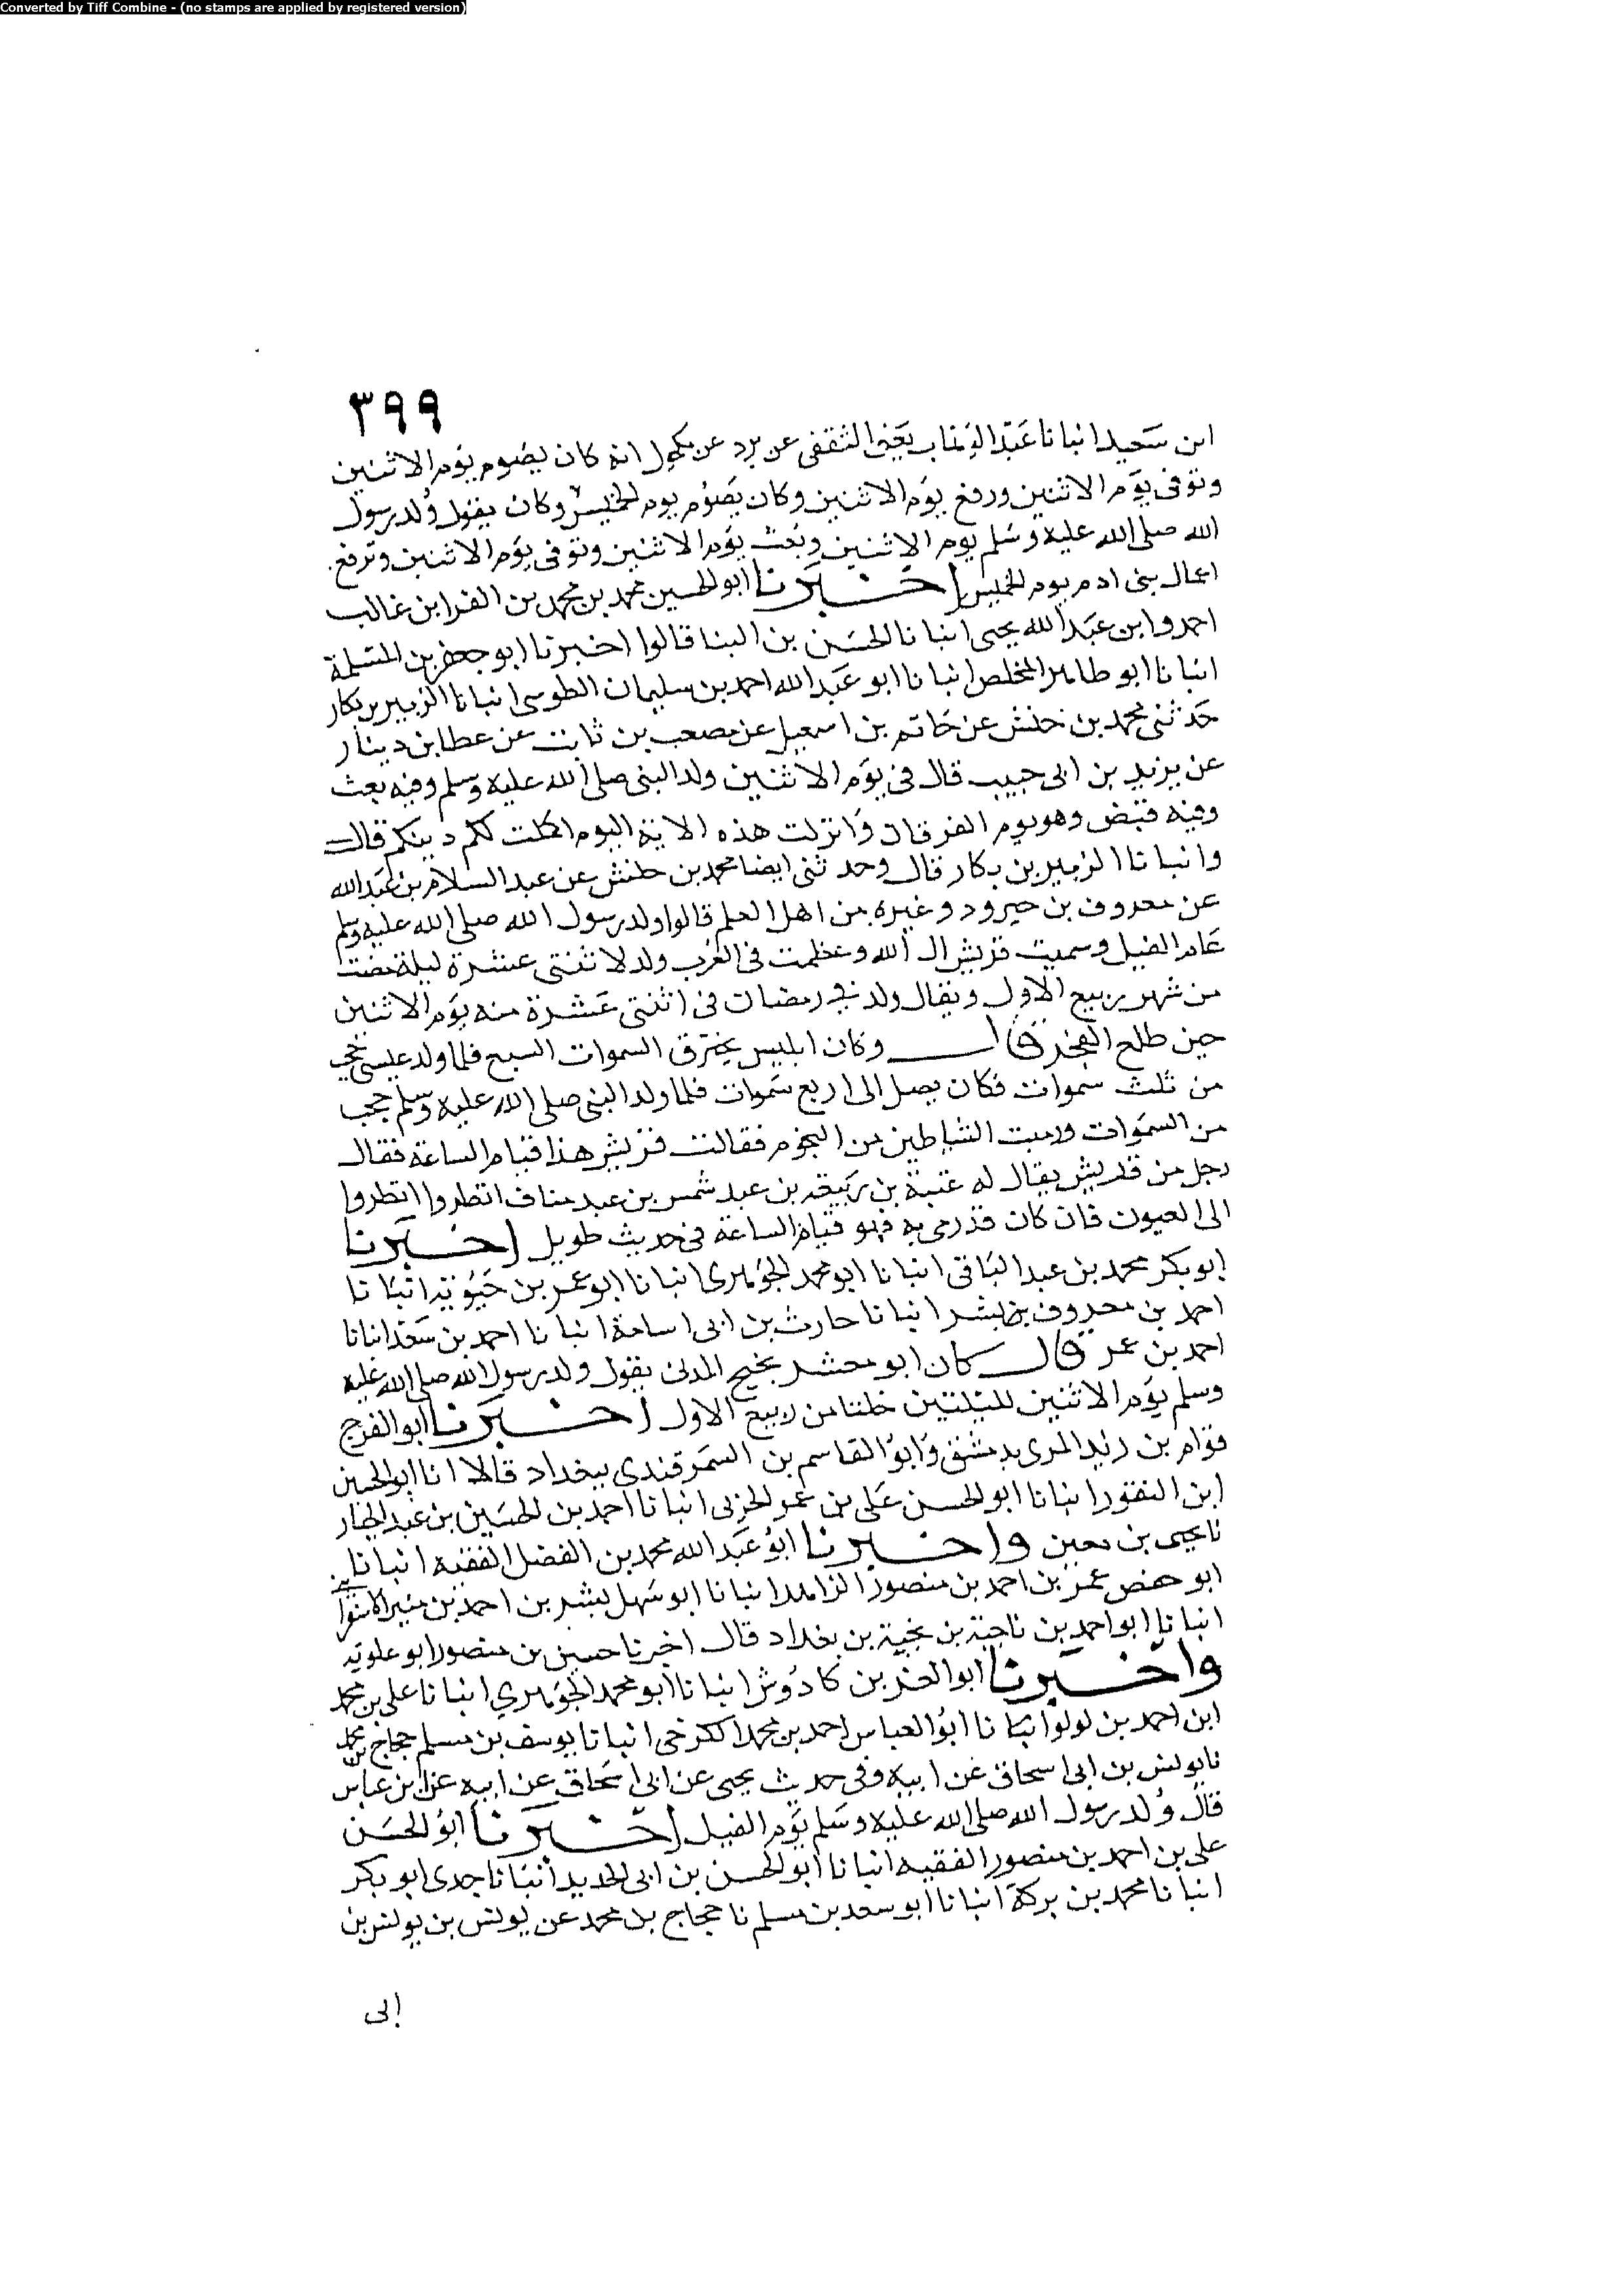 Converted by Tiff Combine - (no stamps are applied by registered version)
٣٩٩
ابن سعيد انبانا عبد الوهاب يعنى الثقفى عن برد عن مكحول انه كان يصوم يوم الاثنين
وتوفى يوم الاثنين ورفع يوم الاثنين وكان يصوم يوم الخميس وكان يقول ولد رسول
الله صلى الله عليه وسلم يوم الاثنين وبعث يوم الاثنين وتوفى يوم الاثنين وترفع
اعمال بنى ادم يوم الخميس اخبرنا ابو الحسين محمد بن محمد بن الفرا ابن غالب
احمد وابن عبد الله يحيى انبانا الحسن بن البنا قالوا اخبرنا ابو جعفر بن المسلمة
انبانا ابو طاهر المخلص انبانا ابو عبد الله احمد بن سليمان الطوسى انبانا الزبير بن بكار
حدثنى محمد بن حنش عن حاتم بن اسمعيل عن مصعب بن ثابت عن عطا بن دينار
عن يزيد بن ابى حبيب قال فى يوم الاثنين ولد النبى صلى الله عليه وسلم وفيه بعث
وفيه قبض وهو يوم الفرقان وانزلت هذه الاية اليوم اكملت لكم دينكم قال
وانبانا الزبير بن بكار قال وحدثنى ايضا محمد بن حنش عن عبد السلام بن عبد الله
عن معروف بن خربوذ وغيره من اهل العلم قالوا ولد رسول الله صلى الله عليه وسلم
عام الفيل وسميت قريش ال الله وعظمت فى العرب ولد لاثنتى عشرة ليلة مضت
من شهر ربيع الاول ويقال ولد فى رمضان فى اثنتى عشرة منه يوم الاثنين
حين طلع الفجر قال وكان ابليس يخترق السموات السبع فلما ولد عيسى حجب
من ثلث سموات فكان يصل الى اربع سموات فلما ولد النبى صلى الله عليه وسلم حجب
من السموات ورميت الشياطين من النجوم فقالت قريش هذا قيام الساعة فقال
رجل من قريش يقال له عتبة بن ربيعة بن عبد شمس بن عبد مناف انظروا انظروا
الى العيوق فان كان قد رمى به فهو قيام الساعة فى حديث طويل اخبرنا
ابو بكر محمد بن عبد الباقى انبانا ابو محمد الجوهرى انبانا ابو عمر بن حيوية انبانا
احمد بن معروف بن بشر انبانا حارث بن ابى اسامة انبانا احمد بن سعد انبانا
احمد بن عمر قال كان ابو معشر نجيح المدنى يقول ولد رسول الله صلى الله عليه
وسلم يوم الاثنين لليلتين خلتا من ربيع الاول اخبرنا ابو الفرج
قوام بن زيد المرى بدمشق وابو القاسم بن السمرقندى ببغداد قالا انا ابو الحسين
ابن النقور انبانا ابو الحسن على بن عمر الحربى انبانا احمد بن الحسين بن عبد الجبار
نا يحيى بن معين واخبرنا ابو عبد الله محمد بن الفضل الفقيه انبانا
ابو حفص عمر بن احمد بن منصور الزاهد انبانا ابو سهل بشر بن احمد بن بشير الاسفرا
انبانا ابو احمد بن ناجية بن نجية بن بغداد قال اخبرنا حسين بن منصور ابو علويه
واخبرنا ابو العز بن كادوش انبانا ابو محمد الجوهرى انبانا على بن محمد
ابن احمد بن لولو انبانا ابو العباس احمد بن محمد الكرخى انبانا يوسف بن مسلم حجاج بن محمد
نا يونس بن ابى اسحاق عن ابيه وفى حديث يحيى عن ابى اسحاق عن ابيه عن ابن عباس
قال ولد رسول الله صلى الله عليه وسلم يوم الفيل اخبرنا ابو الحسن
على بن احمد بن منصور الفقيه انبانا ابو الحسن بن ابى الحديد انبانا جدى ابو بكر
انبانا محمد بن بركة انبانا ابو سعد بن مسلم نا حجاج بن محمد عن يونس بن يونس بن
ابى